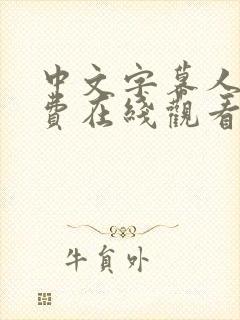 中文字幕人
費在綫觀看
牛貟外